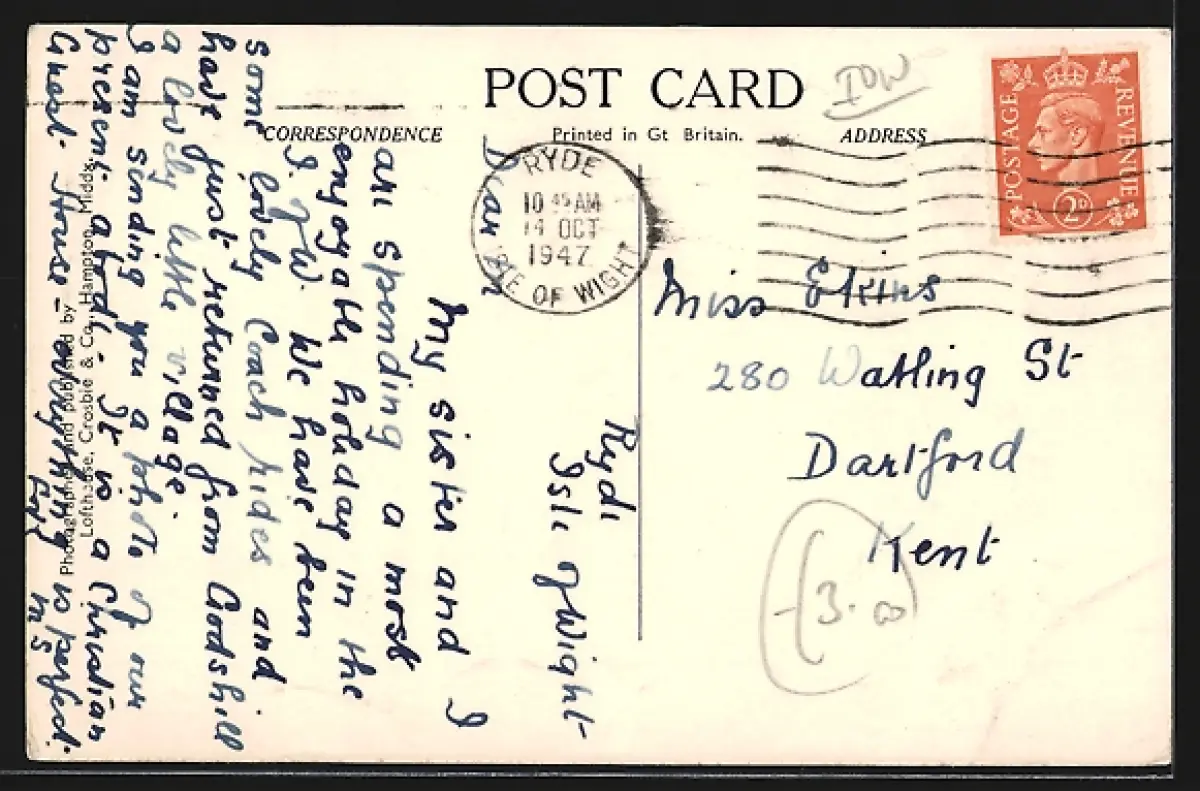 POST CARD
IOW
CORRESPONDENCE
Printed in Gt Britain.
ADDRESS
POSTAGE
REVENUE
2D
RYDE
10 45 AM
14 OCT
1947
ISLE OF WIGHT
Ryde
Isle of Wight
Dear
My sister and I
are spending a most
enjoyable holiday in the
I.of W. We have been
some lovely coach rides and
have just returned from Godshill
a lovely little village.
I am sending you a photo of our
present abode. It is a Christian
Guest House - everything is perfect.
Miss Ekins
280 Watling St
Dartford
Kent
3.00
Photographed and published by
Lofthouse, Crosbie & Co, Hampton, Middx.